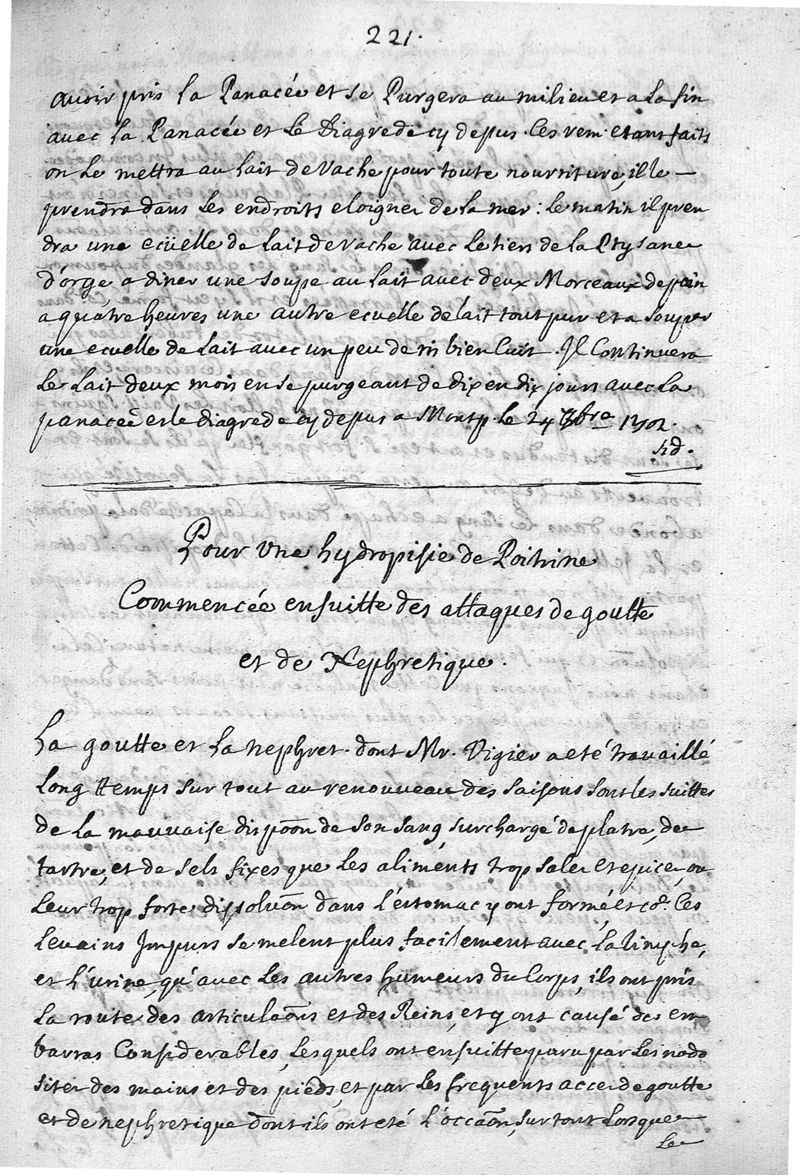 221.
avoir pris la Panacée et se Purgera au milieu et a la fin
avec la Panacée et le Diagrede cy depus. Ces rem. etans faits
on le mettra au lait de Vache pour toute nourriture, il le
prendra dans les endroits eloignez de la mer: le matin il pren
dra une ecüelle de lait de Vache avec le tiers de la Ptysane
d'orge a diner une soupe au lait avec deux Morceaux de pain
a quatre heures une autre ecuelle de lait tout pur et a souper
une ecuelle de lait avec un peu de ris bien Cuit. Il Continuera
le lait deux mois en se purgeant de dix en dix jours avec la
panacée et le diagrede cy depus a Montp. le 24
Pour Une hydropisie de Poitrine
Commencée ensuitte des attaques de goutte
et de Nephretique.
La goutte et la nephret. dont Mr. Vigier a eté travaillé
long ttemps sur tout au renouveau des saisons sont les suittes
de la mauvaise dispoõn de son sang, surchargé de platre, de
tartre, et de sels fixes que les aliments trop salez et epicez, ou
leur trop forte dissoluõn dans l'estomac y ont formé, et co͠e. Ces
levains Impurs se melent plus facilement avec la limphe,
et l'urine, qu'avec les autres humeurs du Corps, ils ont pris
la route des articulaõns et des Reins, et y ont causé des em
barras Considerables, lesquels ont ensuitte paru par les nodo
sitez des mains et des pieds, et par les frequents accez de goutte
et de nephretique dont ils ont eté l'occaõn, sur tout lorsque
le